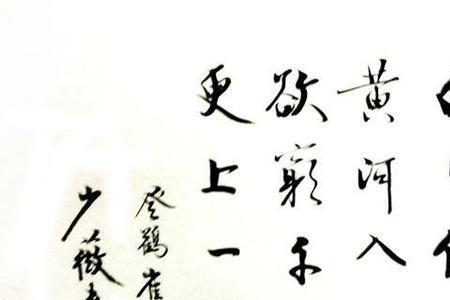 黄河入
欲窮千
更上一
登鸛雀
少薇